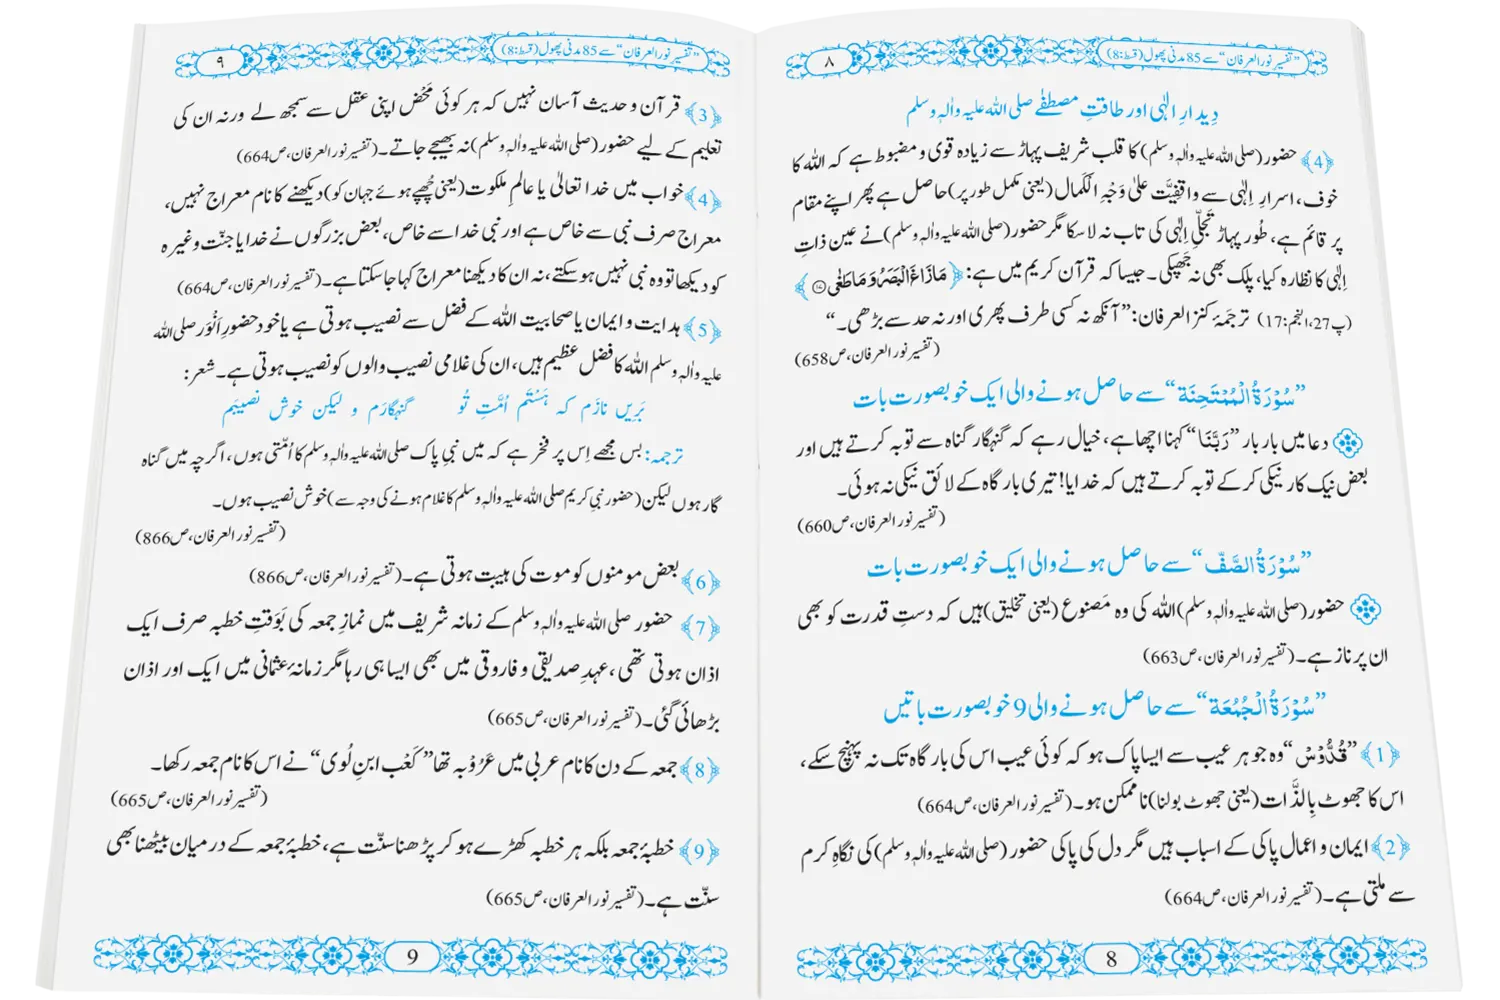 ”تفسیر نور العرفان“ سے 85 مدنی پھول (قسط:8)
۸
دِیدارِ الٰہی اور طاقتِ مصطفٰے صلی اللہ علیہ واٰلہٖ وسلم
﴿4﴾ حضور (صلی اللہ علیہ واٰلہٖ وسلم) کا قلب شریف پہاڑ سے زیادہ قوی و مضبوط ہے کہ اللہ کا
خوف، اسرارِ الٰہی سے واقِفِیَّت عَلیٰ وَجْہِ الْکَمال (یعنی مکمل طور پر) حاصل ہے پھر اپنے مقام
پر قائم ہے، طُور پہاڑ تَجَلِّیِ الٰہی کی تاب نہ لاسکا مگر حضور (صلی اللہ علیہ واٰلہٖ وسلم) نے عین ذاتِ
الٰہی کا نظارہ کیا، پلک بھی نہ جَھپکی۔ جیسا کہ قرآنِ کریم میں ہے: ﴿مَا زَاغَ الْبَصَرُ وَ مَا طَغٰى ۱۷﴾
(پ27، النجم:17) ترجَمۂ کنز العرفان: ”آنکھ نہ کسی طرف پھری اور نہ حد سے بڑھی۔“
(تفسیر نور العرفان، ص658)
”سُوْرَۃُ الْمُمْتَحِنَة“ سے حاصل ہونے والی ایک خوبصورت بات
دعا میں بار بار ”رَبَّنَا“ کہنا اچھا ہے، خیال رہے کہ گنہگار گناہ سے توبہ کرتے ہیں اور
بعض نیک کار نیکی کر کے توبہ کرتے ہیں کہ خدایا! تیری بارگاہ کے لائق نیکی نہ ہوئی۔
(تفسیر نور العرفان، ص660)
”سُوْرَۃُ الصَّفّ“ سے حاصل ہونے والی ایک خوبصورت بات
حضور (صلی اللہ علیہ واٰلہٖ وسلم) اللہ کی وہ مَصنوع (یعنی تخلیق) ہیں کہ دستِ قدرت کو بھی
ان پر ناز ہے۔ (تفسیر نور العرفان، ص663)
”سُوْرَۃُ الْجُمُعَة“ سے حاصل ہونے والی 9 خوبصورت باتیں
﴿1﴾ ”قُدُّوْسْ“ وہ جو ہر عیب سے ایسا پاک ہو کہ کوئی عیب اس کی بارگاہ تک نہ پہنچ سکے،
اس کا جھوٹ بِالذَّات (یعنی جھوٹ بولنا) ناممکن ہو۔ (تفسیر نور العرفان، ص664)
﴿2﴾ ایمان و اعمال پاکی کے اسباب ہیں مگر دل کی پاکی حضور (صلی اللہ علیہ واٰلہٖ وسلم) کی نگاہِ کرم
سے ملتی ہے۔ (تفسیر نور العرفان، ص664)
8
”تفسیر نور العرفان“ سے 85 مدنی پھول (قسط:8)
۹
﴿3﴾ قرآن و حدیث آسان نہیں کہ ہر کوئی مَحْض اپنی عقل سے سمجھ لے ورنہ ان کی
تعلیم کے لیے حضور (صلی اللہ علیہ واٰلہٖ وسلم) نہ بھیجے جاتے۔ (تفسیر نور العرفان، ص664)
﴿4﴾ خواب میں خدا تعالیٰ یا عالمِ ملکوت (یعنی چُھپے ہوئے جہان کو) دیکھنے کا نام معراج نہیں،
معراج صرف نبی سے خاص ہے اور نبی خدا سے خاص، بعض بزرگوں نے خدا یا جنّت وغیرہ
کو دیکھا تو وہ نبی نہیں ہوسکتے، نہ ان کا دیکھنا معراج کہا جاسکتا ہے۔ (تفسیر نور العرفان، ص664)
﴿5﴾ ہدایت و ایمان یا صحابیت اللہ کے فضل سے نصیب ہوتی ہے یا خود حضورِ اَنْوَر صلی اللہ
علیہ واٰلہٖ وسلم اللہ کا فضل عظیم ہیں، ان کی غلامی نصیب والوں کو نصیب ہوتی ہے۔ شعر:
بَریں نازَم کہ ہَسْتَم اُمَّتِ تُو گنہگارَم و لیکن خوش نصیبَم
ترجمہ: بس مجھے اِس پر فخر ہے کہ میں نبیِ پاک صلی اللہ علیہ واٰلہٖ وسلم کا اُمّتی ہوں، اگرچہ میں گناہ
گار ہوں لیکن (حضور نبیِ کریم صلی اللہ علیہ واٰلہٖ وسلم کا غلام ہونے کی وجہ سے) خوش نصیب ہوں۔
(تفسیر نور العرفان، ص866)
﴿6﴾ بعض مومنوں کو موت کی ہیبت ہوتی ہے۔ (تفسیر نور العرفان، ص866)
﴿7﴾ حضور صلی اللہ علیہ واٰلہٖ وسلم کے زمانہ شریف میں نمازِ جمعہ کی بَوَقتِ خطبہ صرف ایک
اذان ہوتی تھی، عہدِ صدیقی و فاروقی میں بھی ایسا ہی رہا مگر زمانۂ عثمانی میں ایک اور اذان
بڑھائی گئی۔ (تفسیر نور العرفان، ص665)
﴿8﴾ جمعہ کے دن کا نام عربی میں عَرُوْبہ تھا ”کَعْب ابنِ لُوی“ نے اس کا نام جمعہ رکھا۔
(تفسیر نور العرفان، ص665)
﴿9﴾ خطبۂ جمعہ بلکہ ہر خطبہ کھڑے ہو کر پڑھنا سنّت ہے، خطبۂ جمعہ کے درمیان بیٹھنا بھی
سنّت ہے۔ (تفسیر نور العرفان، ص665)
9